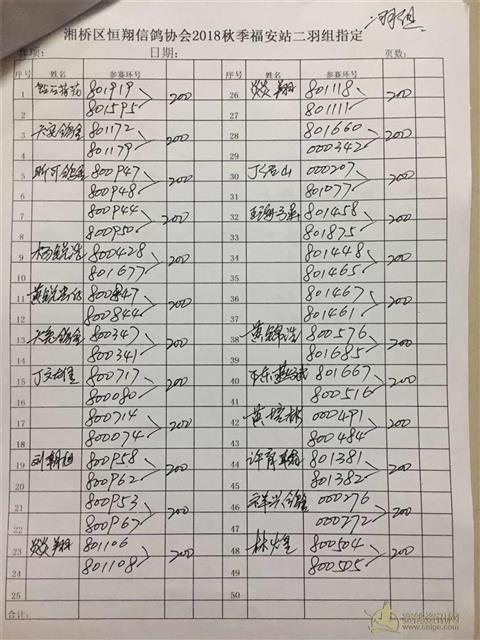 二羽组
湘桥区恒翔信鸽协会2018秋季福安站二羽组指定
赛项: 日期: 页数:
序号 姓名 参赛环号 序号 姓名 参赛环号
1 801919 200 26 燚翔 801118 200
2 801595 27 801111
3 801172 200 28 801660 200
4 801179 29 000342
5 昕可鸽舍 800947 200 30 000207 200
6 800948 31 801077
7 800944 200 32 801458 200
8 800950 33 801875
9 800428 200 34 801448 200
10 801677 35 801465
11 800847 200 36 801467 200
12 800844 37 801461
13 800347 200 38 800576 200
14 800341 39 801685
15 800717 200 40 801667 200
16 800080 41 800516
17 800714 200 42 黄培林 000491 200
18 800074 43 800484
19 刘朝旭 800958 200 44 801381 200
20 800962 45 801382
21 800953 200 46 祥兴鸽舍 000276 200
22 800967 47 000272
23 燚翔 801106 200 48 林煌 800504 200
24 801108 49 800505
25 50
合计:
赛鸽资讯网
www.saige.com